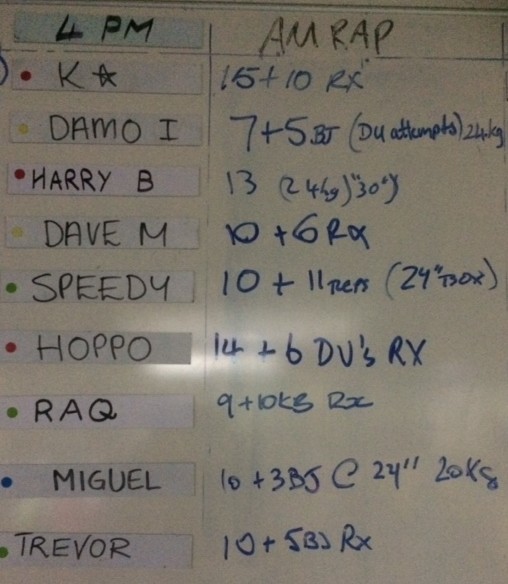 4 PM AMRAP
K☆ 15+10 RX
DAMO I 7+5BJ (DU attempts) 24kg
HARRY B 13 (24kg) "30")
DAVE M 10 +6 Rx
SPEEDY 10 + 11 reps (24" BOX)
HOPPO 14 + 6 DU's RX
RAQ 9+10KB Rx
MIGUEL 10 +3BJ @ 24" 20Kg
TREVOR 10+5BJ Rx